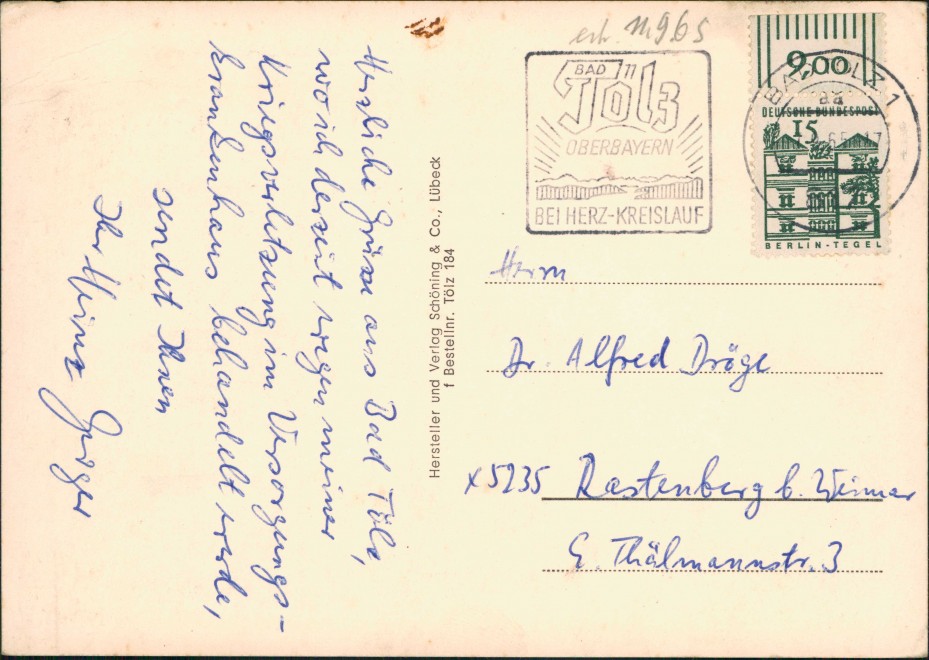 Herzliche Grüsse aus Bad Tölz,
wo ich derzeit wegen meiner
Kriegsverletzung im Versorgungs-
krankenhaus behandelt werde,
sendet Ihnen
Ihr Heinz
Hersteller und Verlag Schöning & Co., Lübeck
† Bestellnr. Tölz 184
BAD
Tölz
OBERBAYERN
BEI HERZ-KREISLAUF
9,00
BAD TÖLZ 1
aa
DEUTSCHE BUNDESPOST
15
BERLIN-TEGEL
Herrn
Dr. Alfred Dröge
x5235 Rastenberg b. Weimar
E. Thälmannstr. 3